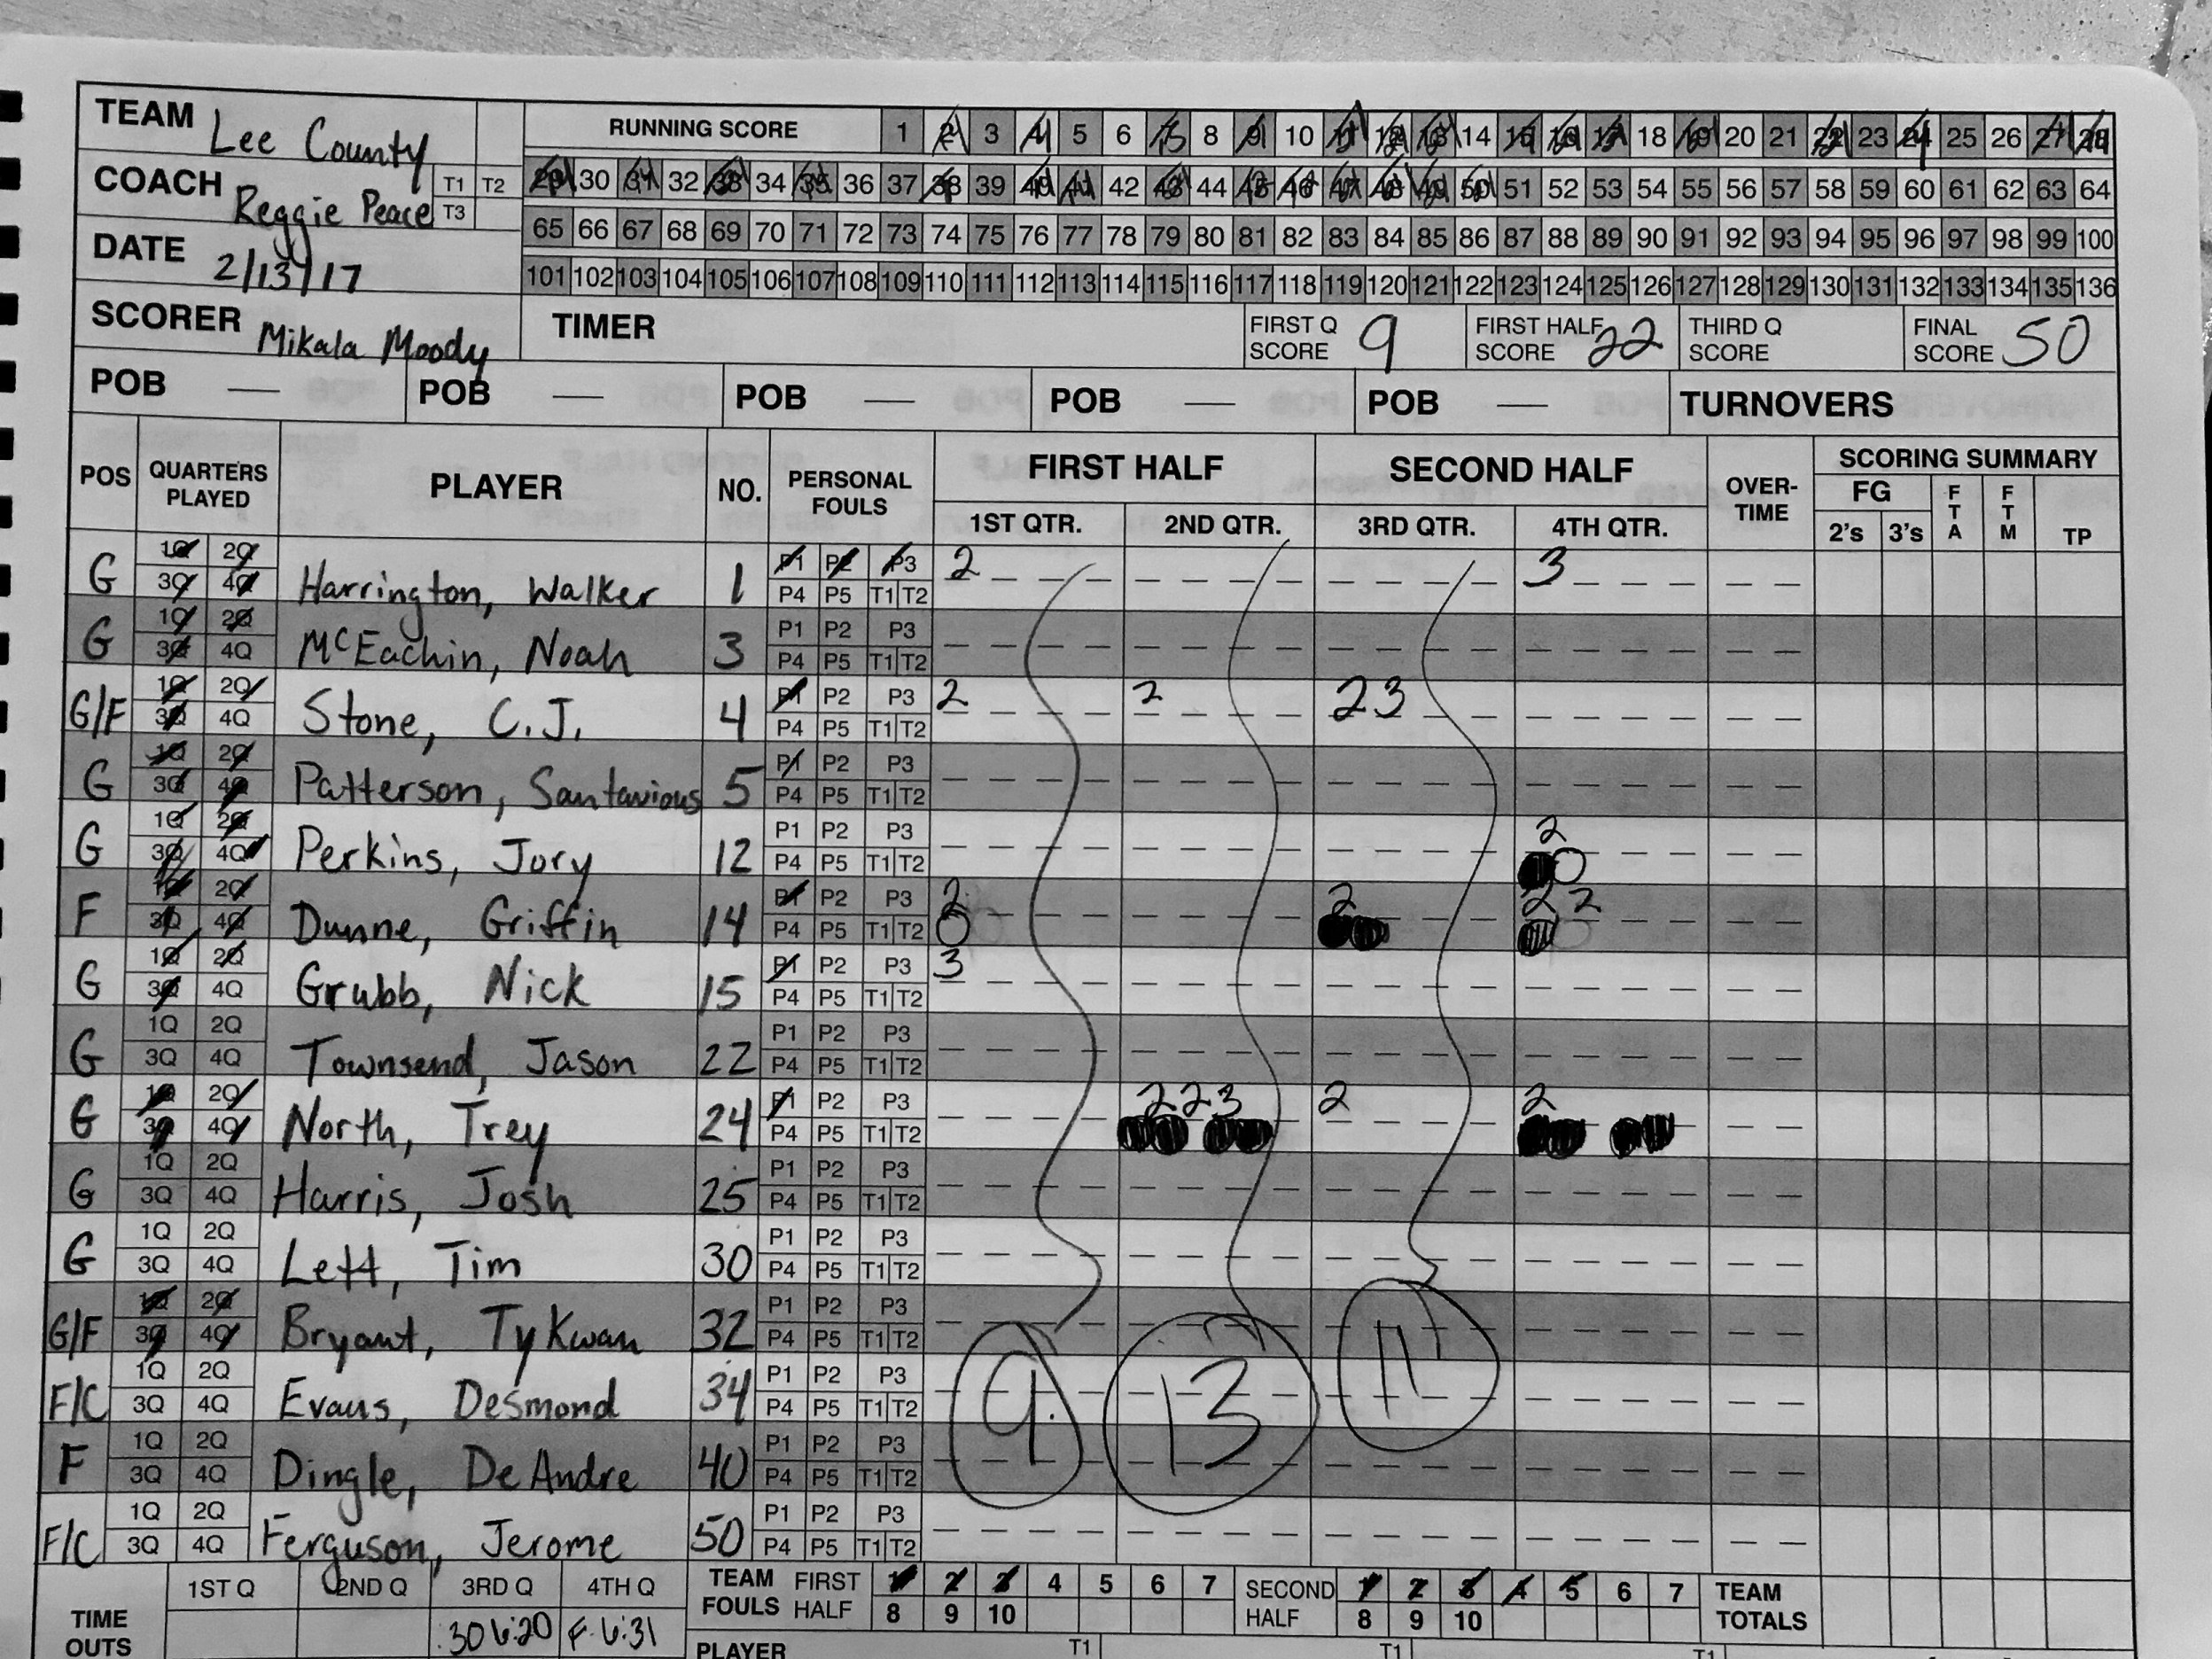 TEAM Lee County
RUNNING SCORE 1 2 3 4 5 6 7 8 9 10 11 12 13 14 15 16 17 18 19 20 21 22 23 24 25 26 27 28
COACH Reggie Peace T1 T2 T3
29 30 31 32 33 34 35 36 37 38 39 40 41 42 43 44 45 46 47 48 49 50 51 52 53 54 55 56 57 58 59 60 61 62 63 64
65 66 67 68 69 70 71 72 73 74 75 76 77 78 79 80 81 82 83 84 85 86 87 88 89 90 91 92 93 94 95 96 97 98 99 100
DATE 2/13/17
101 102 103 104 105 106 107 108 109 110 111 112 113 114 115 116 117 118 119 120 121 122 123 124 125 126 127 128 129 130 131 132 133 134 135 136
SCORER Mikala Moody TIMER FIRST Q SCORE 9 FIRST HALF SCORE 22 THIRD Q SCORE FINAL SCORE 50
POB — POB — POB — POB — POB — TURNOVERS
POS QUARTERS PLAYED PLAYER NO. PERSONAL FOULS FIRST HALF SECOND HALF OVER-TIME SCORING SUMMARY
1ST QTR. 2ND QTR. 3RD QTR. 4TH QTR. FG 2's 3's FTA FTM TP
G 1Q 2Q 3Q 4Q Harrington, Walker 1 P1 P2 P3 P4 P5 T1 T2 2 3
G 1Q 2Q 3Q 4Q McEachin, Noah 3 P1 P2 P3 P4 P5 T1 T2
G/F 1Q 2Q 3Q 4Q Stone, C.J. 4 P1 P2 P3 P4 P5 T1 T2 2 2 2 3
G 1Q 2Q 3Q 4Q Patterson, Santavious 5 P1 P2 P3 P4 P5 T1 T2
G 1Q 2Q 3Q 4Q Perkins, Jory 12 P1 P2 P3 P4 P5 T1 T2 2
F 1Q 2Q 3Q 4Q Dunne, Griffin 14 P1 P2 P3 P4 P5 T1 T2 2 2 2 2
G 1Q 2Q 3Q 4Q Grubb, Nick 15 P1 P2 P3 P4 P5 T1 T2 3
G 1Q 2Q 3Q 4Q Townsend, Jason 22 P1 P2 P3 P4 P5 T1 T2
G 1Q 2Q 3Q 4Q North, Trey 24 P1 P2 P3 P4 P5 T1 T2 2 2 3 2 2
G 1Q 2Q 3Q 4Q Harris, Josh 25 P1 P2 P3 P4 P5 T1 T2
G 1Q 2Q 3Q 4Q Lett, Tim 30 P1 P2 P3 P4 P5 T1 T2
G/F 1Q 2Q 3Q 4Q Bryant, TyKwan 32 P1 P2 P3 P4 P5 T1 T2
F/C 1Q 2Q 3Q 4Q Evans, Desmond 34 P1 P2 P3 P4 P5 T1 T2 9 13 11
F 1Q 2Q 3Q 4Q Dingle, DeAndre 40 P1 P2 P3 P4 P5 T1 T2
F/C 1Q 2Q 3Q 4Q Ferguson, Jerome 50 P1 P2 P3 P4 P5 T1 T2
TIME OUTS 1ST Q 2ND Q 3RD Q 4TH Q TEAM FOULS FIRST HALF 1 2 3 4 5 6 7 8 9 10 SECOND HALF 1 2 3 4 5 6 7 8 9 10 TEAM TOTALS
:30 6:20 F 6:31
PLAYER T1 T1 T1